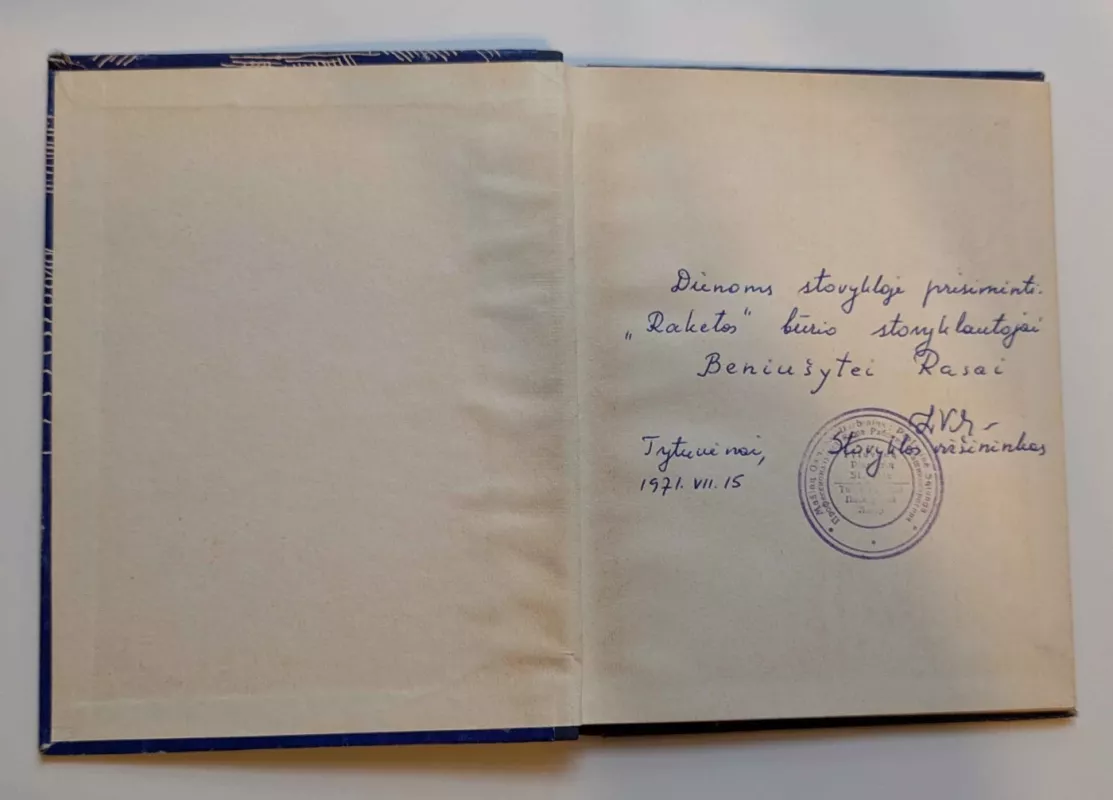 Dienoms stovykloje prisiminti.
„Raketos" būrio stovyklautojai
Beniušytei Rasai
Stovyklos viršininkas
Tytuvėnai,
1971. VII. 15